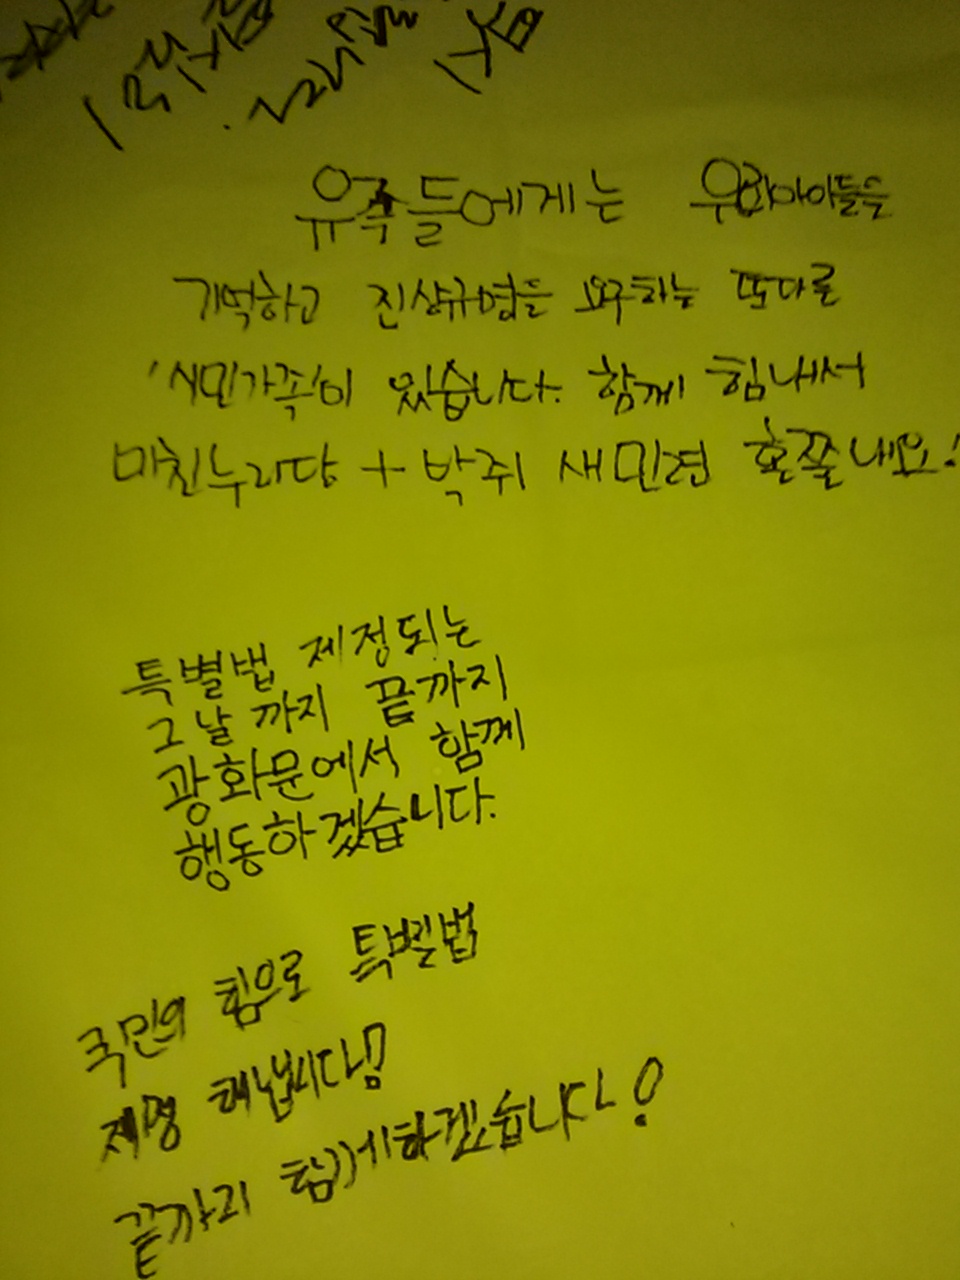 유족들에게는 아이들을
기억하고 진상규명을 요구하는 또다른
'시민가족'이 있습니다. 함께 힘내서
미친누리당 + 박쥐 새민련 혼쭐내요!
특별법 제정되는
그날까지 끝까지
광화문에서 함께
행동하겠습니다.
국민의 힘으로 특별법
제정 해냅시다!
끝까지 함께하겠습니다!